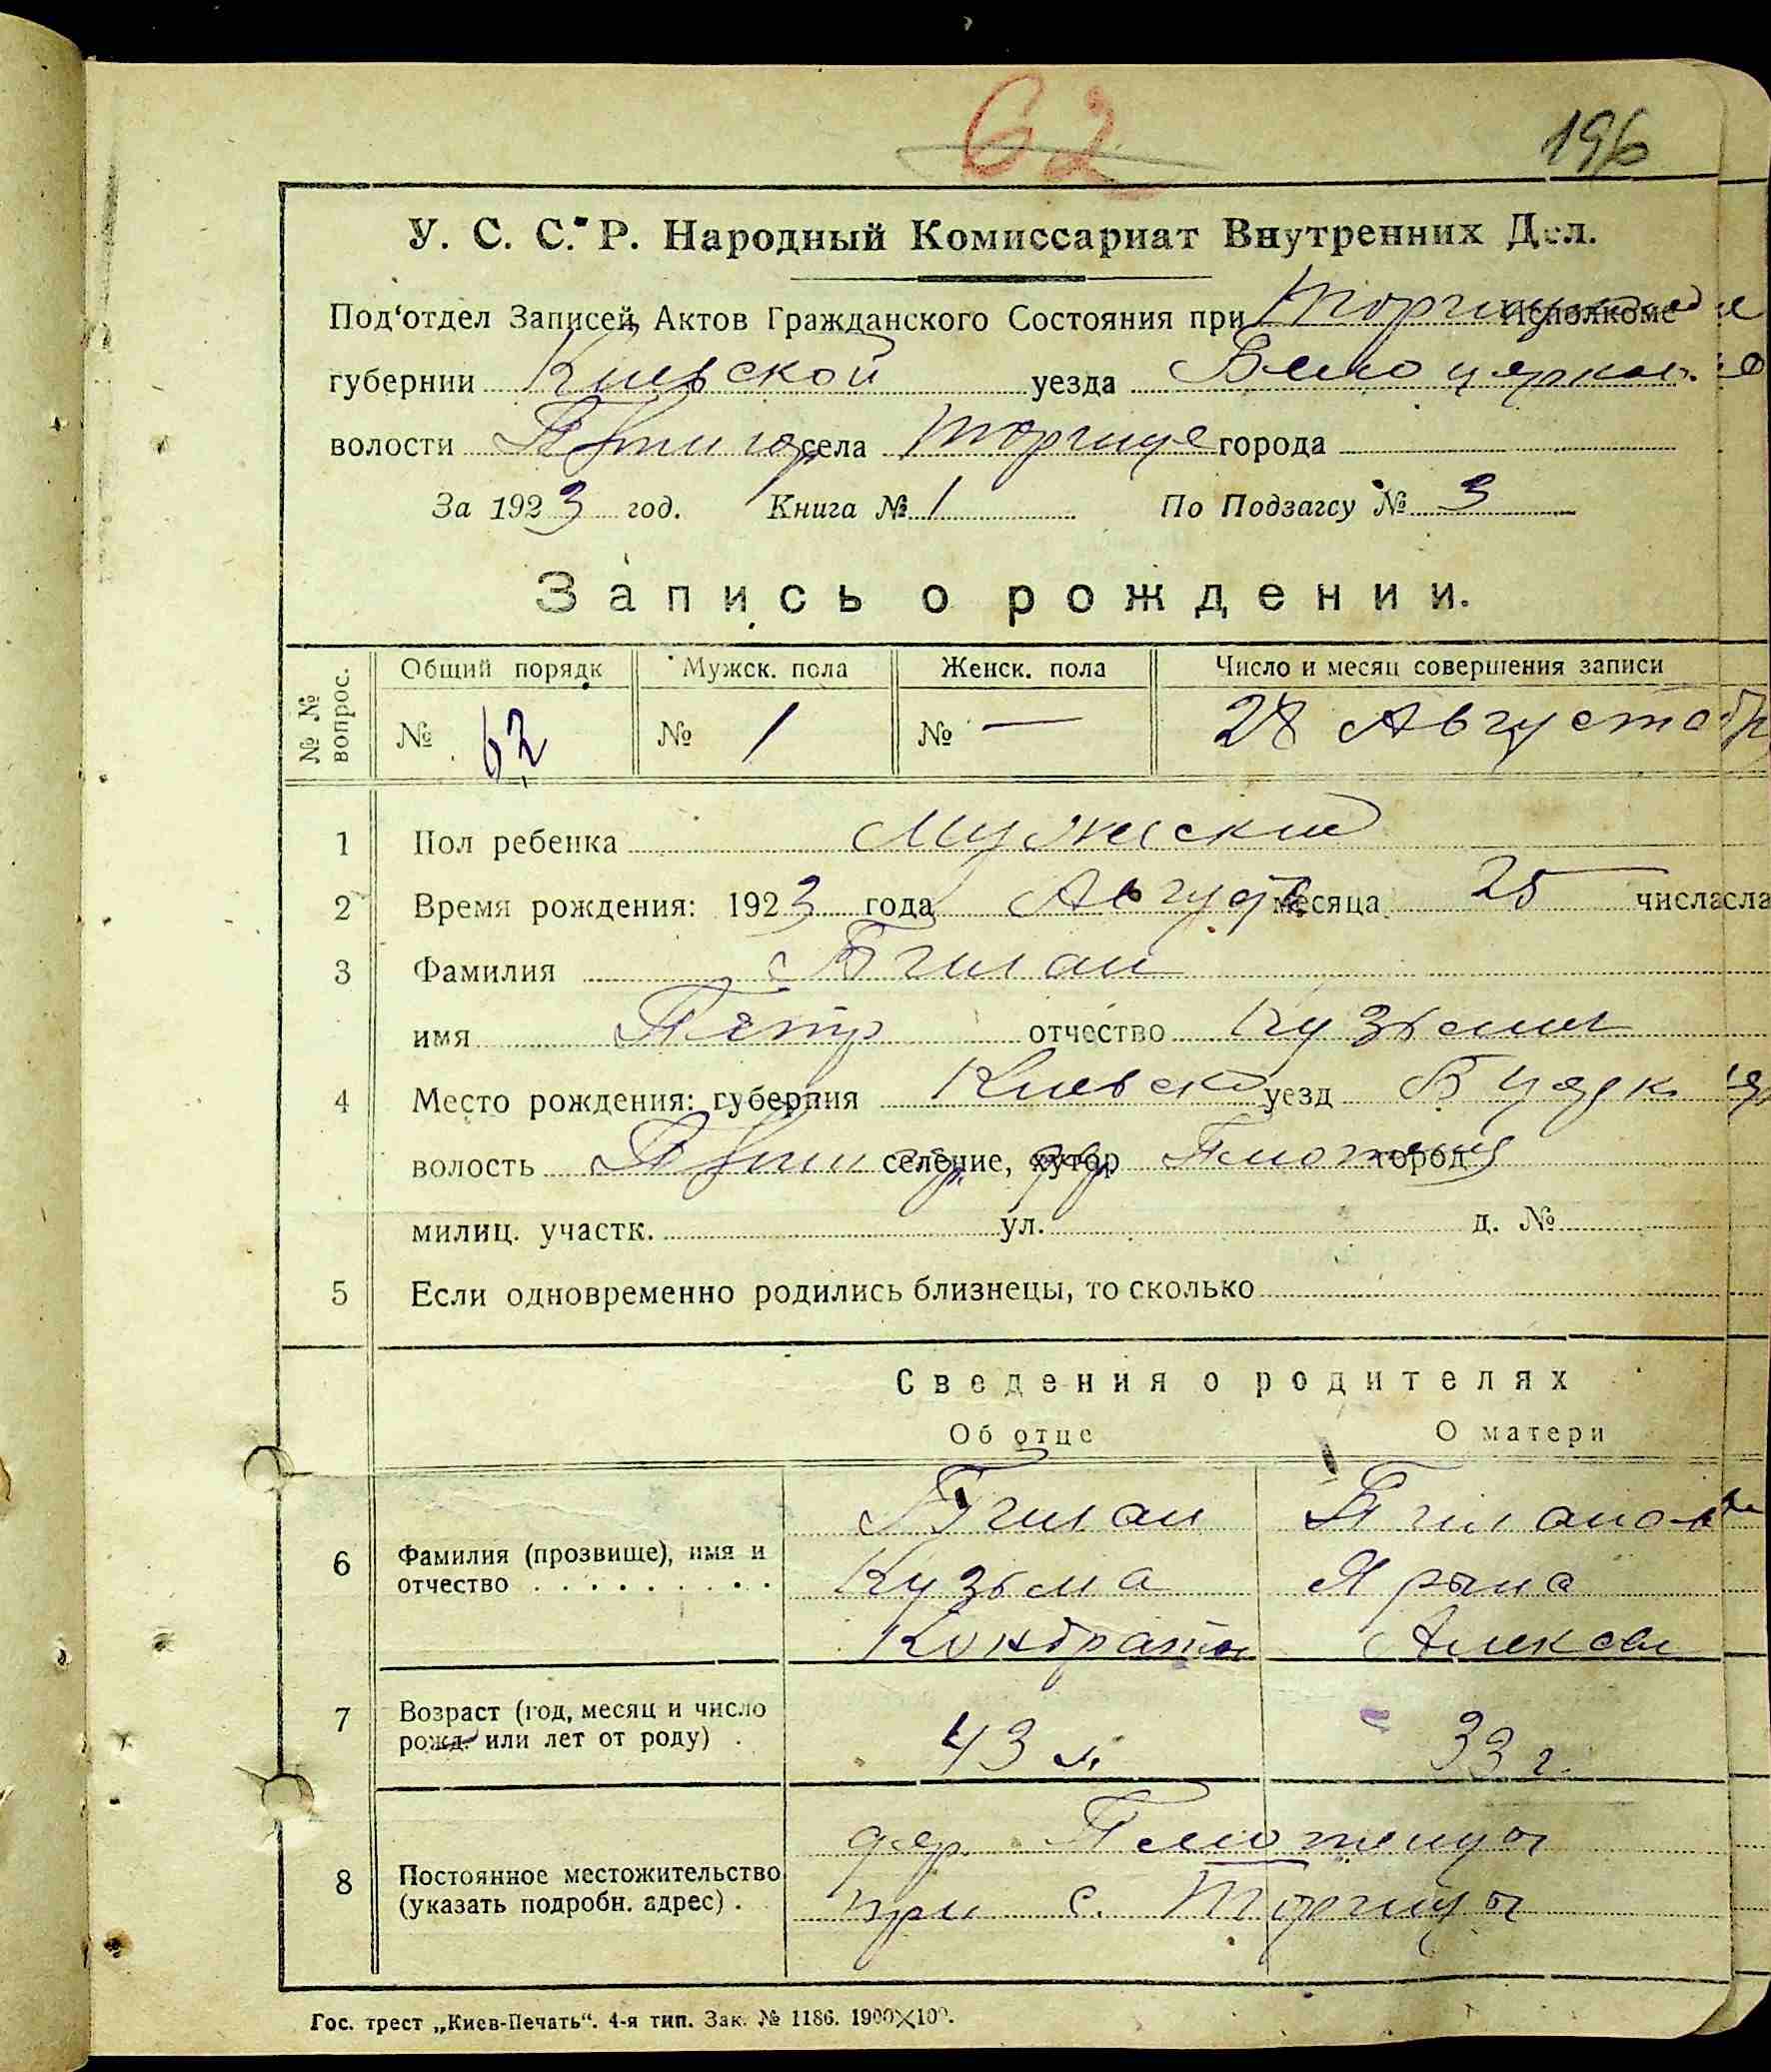 62
196
У. С. С. Р. Народный Комиссариат Внутренних Дел.
Под'отдел Записей Актов Гражданского Состояния при Исполкоме
губернии Киевской уезда Белоцерков.
волости села Торчице города
За 1923 год. Книга № 1 По Подзагсу № 3
Запись о рождении.
№ № вопрос. Общий порядк Мужск. пола Женск. пола Число и месяц совершения записи
№ 62 № 1 № — 28 Августа
1 Пол ребенка Мужеский
2 Время рождения: 1923 года Август месяца 25 числа
3 Фамилия
имя Петр отчество Кузьмич
4 Место рождения: губерния Киевск уезд Б церк
волость селение, хутор город
милиц. участк. ул. д. №
5 Если одновременно родились близнецы, то сколько
Сведения о родителях
Об отце О матери
6 Фамилия (прозвище), имя и отчество
Кузьма Ярына
Кондратов Алексеев
7 Возраст (год, месяц и число рожд. или лет от роду) 43 л. 33 г.
8 Постоянное местожительство (указать подробн. адрес) дер.
при с. Торчицы
Гос. трест „Киев-Печать“. 4-я тип. Зак. № 1186. 1900×100.